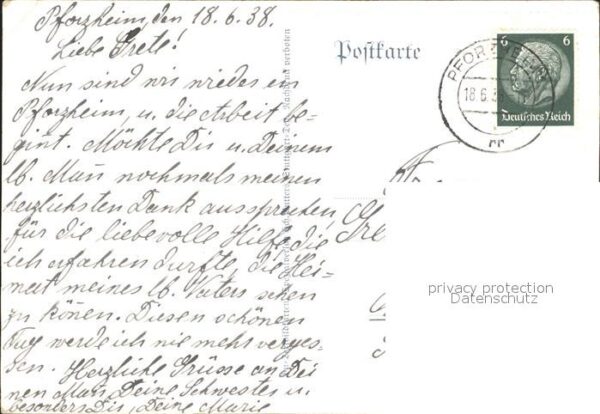 Pforzheim, den 18.6.38.
Liebe Grete!
Nun sind wir wieder in
Pforzheim, u. die Arbeit be-
gint. Möchte Dir u. Deinem
lb. Man nochmals meinen
herzlichsten Dank aussprechen,
für die liebevolle Hilfe, die
ich erfahren durfte, die Hei-
mat meines lb. Vaters sehen
zu können. Diesen schönen
Tag werde ich nie mehr verges-
sen. Herzliche Grüsse an Dei-
nen Man, Deine Schwester u.
besonders Dir, Deine Marie
Postkarte
6 6
Deutsches Reich
PFORZHEIM
18.6.38
rr
privacy protection
Datenschutz